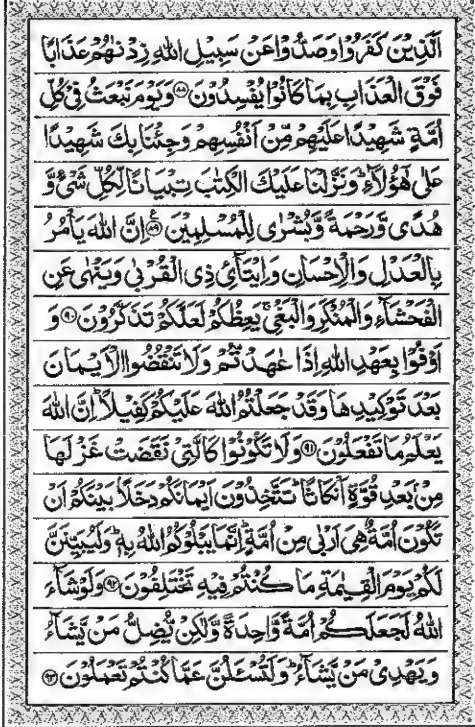 اَلَّذِيْنَ كَفَرُوْا وَصَدُّوْا عَنْ سَبِيْلِ اللهِ زِدْنٰهُمْ عَذَابًا
فَوْقَ الْعَذَابِ بِمَا كَانُوْا يُفْسِدُوْنَ ﴿٨٨﴾ وَيَوْمَ نَبْعَثُ فِيْ كُلِّ
اُمَّةٍ شَهِيْدًا عَلَيْهِمْ مِّنْ اَنْفُسِهِمْ وَجِئْنَا بِكَ شَهِيْدًا
عَلٰى هٰٓؤُلَآءِ ؕ وَنَزَّلْنَا عَلَيْكَ الْكِتٰبَ تِبْيَانًا لِّكُلِّ شَيْءٍ وَّ
هُدًى وَّرَحْمَةً وَّبُشْرٰى لِلْمُسْلِمِيْنَ ﴿٨٩﴾ اِنَّ اللهَ يَاْمُرُ
بِالْعَدْلِ وَالْاِحْسَانِ وَاِيْتَآئِ ذِي الْقُرْبٰى وَيَنْهٰى عَنِ
الْفَحْشَآءِ وَالْمُنْكَرِ وَالْبَغْيِ ۚ يَعِظُكُمْ لَعَلَّكُمْ تَذَكَّرُوْنَ ﴿٩٠﴾ وَ
اَوْفُوْا بِعَهْدِ اللهِ اِذَا عٰهَدْتُّمْ وَلَا تَنْقُضُوا الْاَيْمَانَ
بَعْدَ تَوْكِيْدِهَا وَقَدْ جَعَلْتُمُ اللهَ عَلَيْكُمْ كَفِيْلًا ؕ اِنَّ اللهَ
يَعْلَمُ مَا تَفْعَلُوْنَ ﴿٩١﴾ وَلَا تَكُوْنُوْا كَالَّتِيْ نَقَضَتْ غَزْلَهَا
مِنْ بَعْدِ قُوَّةٍ اَنْكَاثًا ؕ تَتَّخِذُوْنَ اَيْمَانَكُمْ دَخَلًاۢ بَيْنَكُمْ اَنْ
تَكُوْنَ اُمَّةٌ هِيَ اَرْبٰى مِنْ اُمَّةٍ ؕ اِنَّمَا يَبْلُوْكُمُ اللهُ بِهٖ ؕ وَلَيُبَيِّنَنَّ
لَكُمْ يَوْمَ الْقِيٰمَةِ مَا كُنْتُمْ فِيْهِ تَخْتَلِفُوْنَ ﴿٩٢﴾ وَلَوْ شَآءَ
اللهُ لَجَعَلَكُمْ اُمَّةً وَّاحِدَةً وَّلٰكِنْ يُّضِلُّ مَنْ يَّشَآءُ
وَيَهْدِيْ مَنْ يَّشَآءُ ؕ وَلَتُسْـَٔلُنَّ عَمَّا كُنْتُمْ تَعْمَلُوْنَ ﴿٩٣﴾